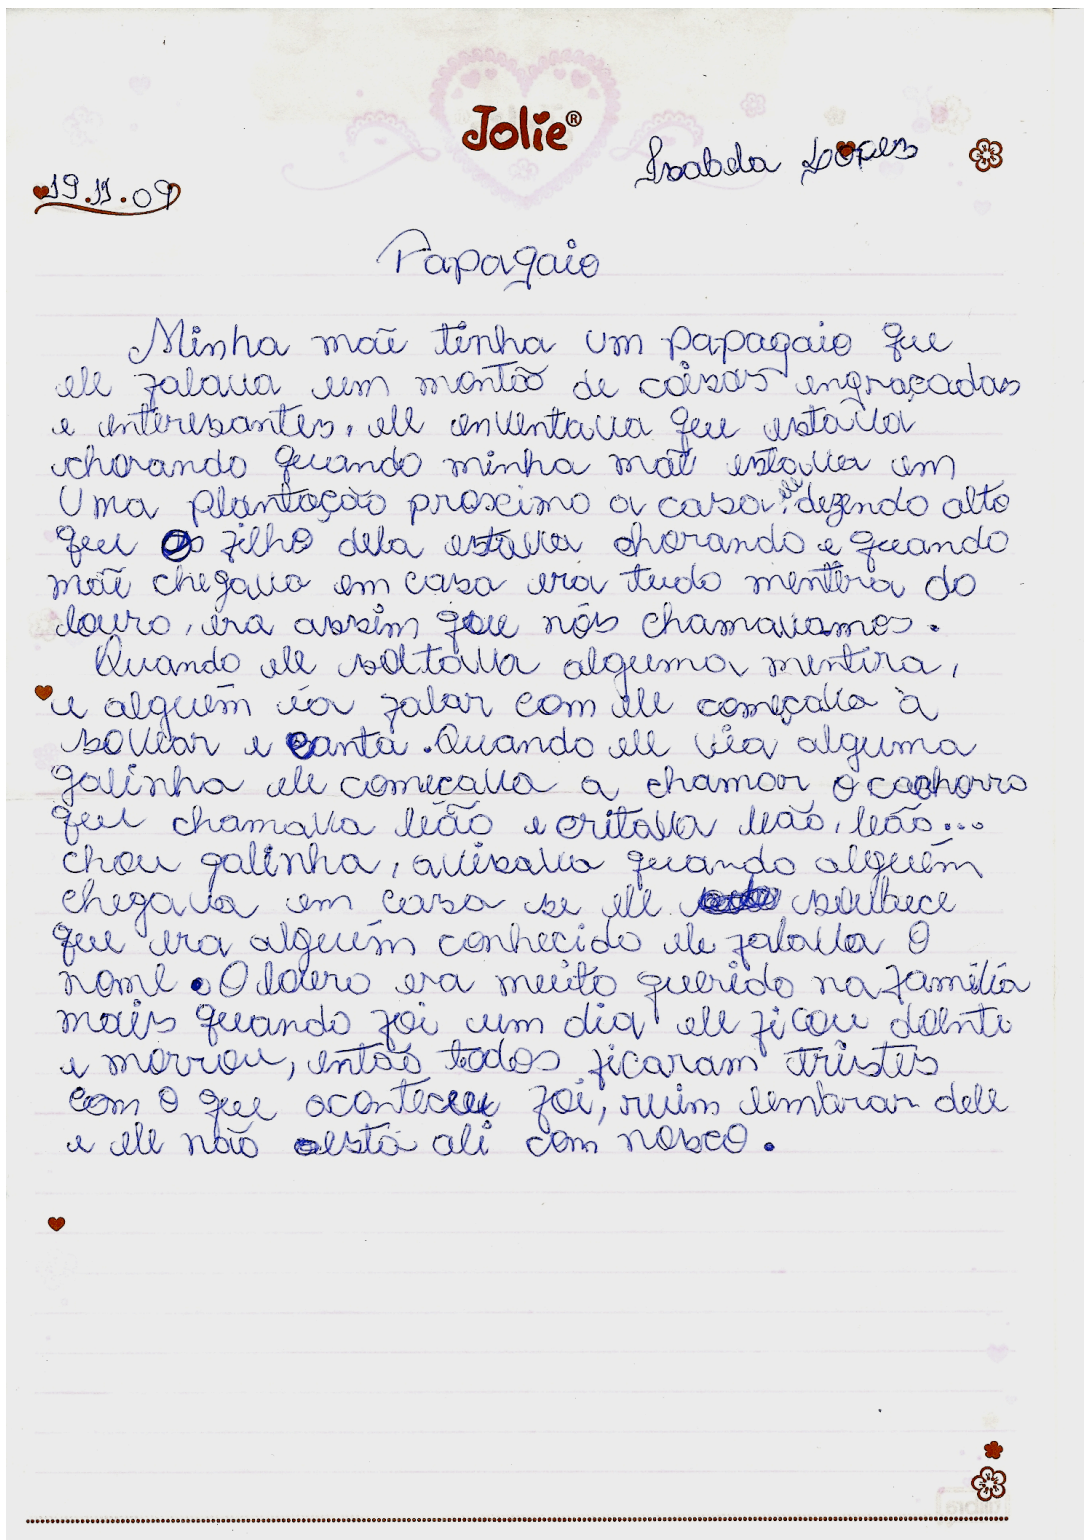 Jolie®
Isabela Lopes
19.11.09
Papagaio
Minha mãe tinha um papagaio que
ele falava um montão de coisas engraçadas
e interesantes, ele enventava que estava
chorando quando minha mãe estava em
uma plantação proximo a casa, ele dezendo alto
que o filho dela estava chorando e quando
mãe chegava em casa era tudo mentira do
louro, era assim que nós chamavamos.
Quando ele soltava alguma mentira,
e alguém ia falar com ele começava à
soviar e canta. Quando ele via alguma
galinha ele começava a chamar o cachorro
que chamava leão e critava leão, leão...
chou galinha, avisava quando alguém
chegava em casa se ele soubece
que era alguém conhecido ele falava o
nome. O louro era muito querido na família
mais quando foi um dia ele ficou doente
e morrou, então todos ficaram tristes
com o que aconteceu foi, ruim lembrar dele
e ele não está ali com nosco.